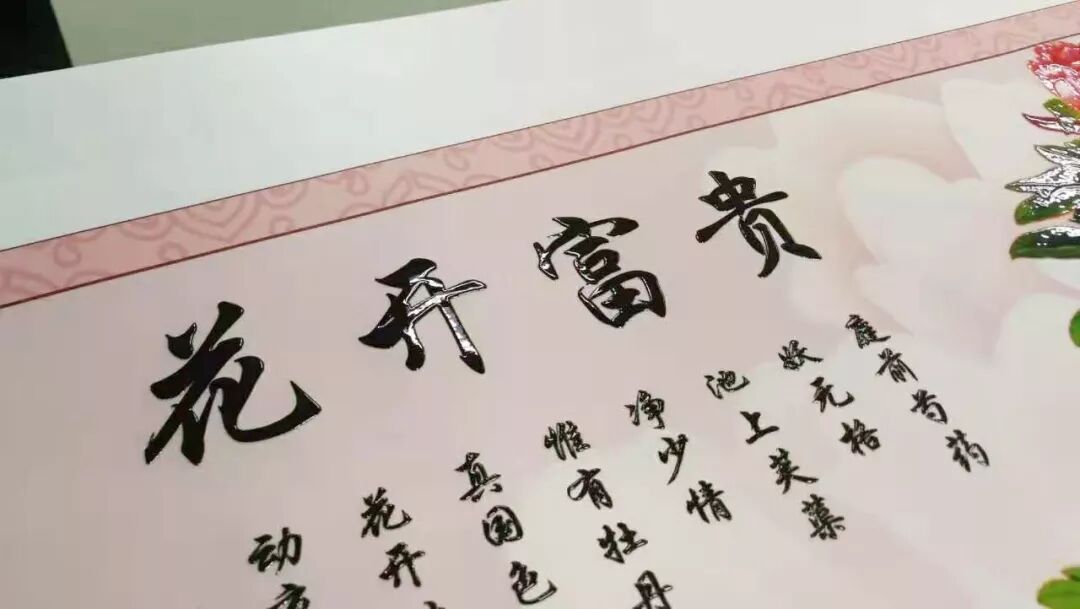 花开富贵
庭前芍药
妖无格
池上芙蕖
净少情
惟有牡丹
真国色
花开
动